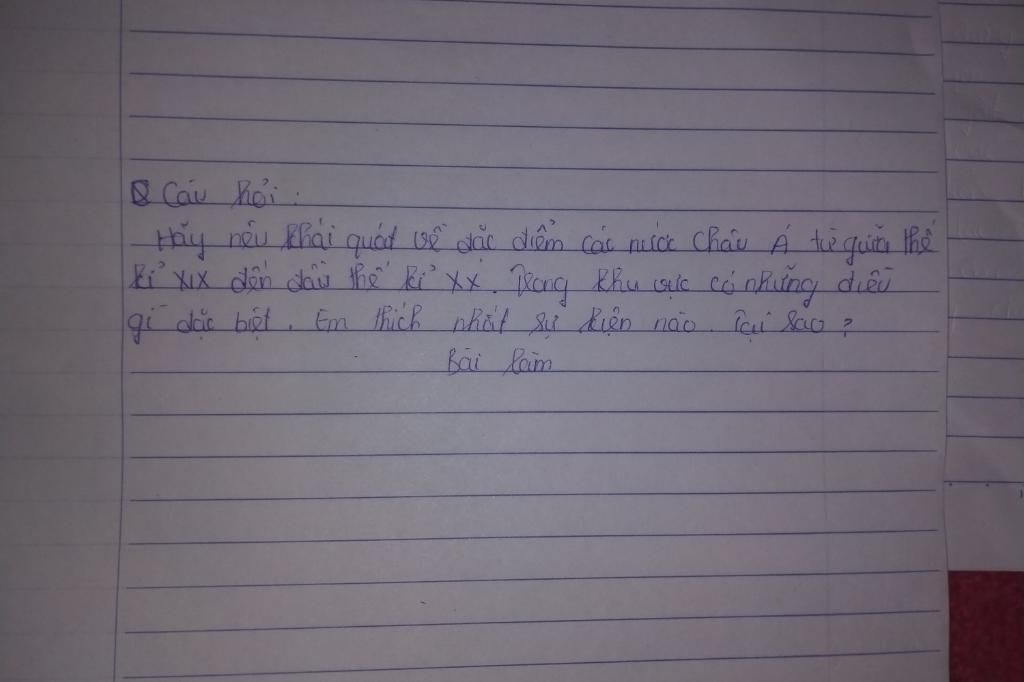 Câu hỏi :
Hãy nêu khái quát về đặc điểm các nước Châu Á từ giữa thế
kỉ XIX đến đầu thế kỉ XX. Trong khu vực có những điều
gì đặc biệt. Em thích nhất sự kiện nào. Tại sao ?
Bài làm